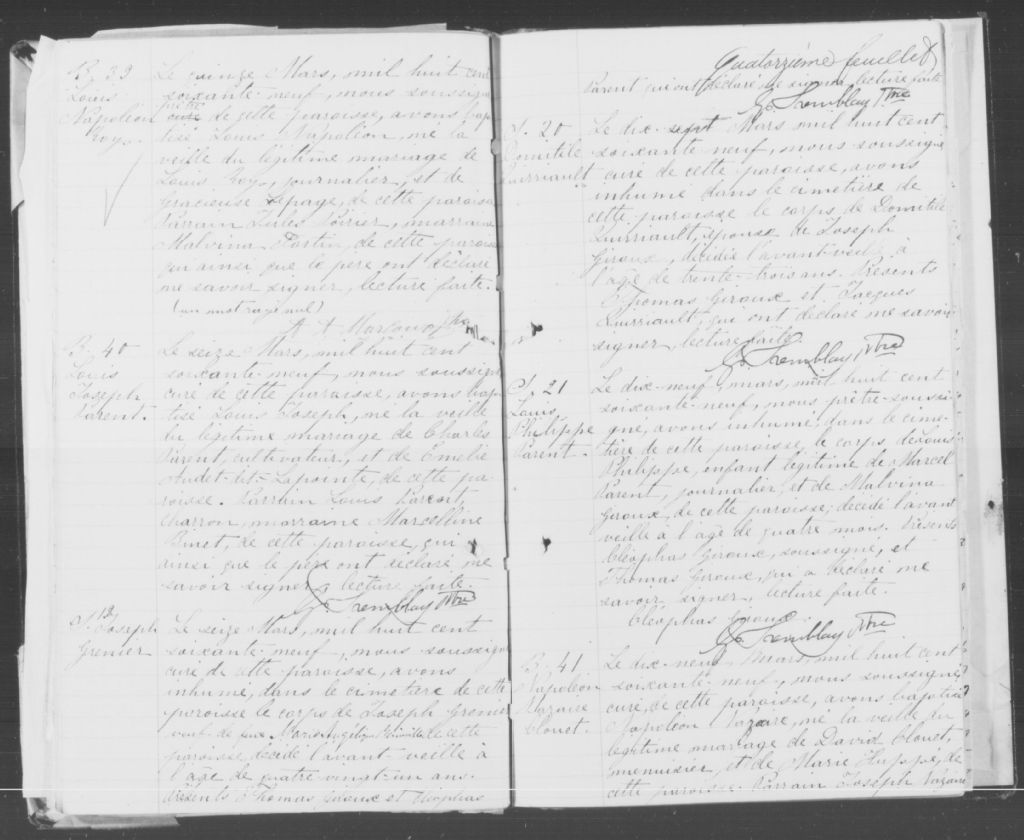 B. 39
Louis
Napoléon
Roy.
Le quinze Mars, mil huit cent
soixante-neuf, nous soussigné
prêtre
curé de cette paroisse, avons bap
tisé Louis Napoléon, né la
veille du légitime mariage de
Louis Roy, journalier, et de
Gracieuse Lepage, de cette paroisse
Parrain Jules Poirier, marraine
Malvina Fortin, de cette paroisse
qui ainsi que le père ont déclaré
ne savoir signer, lecture faite.
(un mot rayé nul)
Ptre
B. 40
Louis
Joseph
Parent.
Le seize Mars, mil huit cent
soixante-neuf, nous soussigné
curé de cette paroisse, avons bap
tisé Louis Joseph, né la veille
du légitime mariage de Charles
Parent, cultivateur, et de Emélie
Audet-dit-Lapointe, de cette pa-
roisse. Parrain Louis
charron, marraine Marcelline
Binet, de cette paroisse, qui
ainsi que le père ont déclaré ne
savoir signer, lecture faite.
G. Tremblay Ptre
S. 19
Joseph
Grenier
Le seize Mars, mil huit cent
soixante-neuf, nous soussigné
curé de cette paroisse, avons
inhumé, dans le cimetière de cette
paroisse le corps de Joseph Grenier
veuf de feue Marie de cette
paroisse, décédé l'avant-veille à
l'âge de quatre-vingt-un ans.
Présents Thomas Giroux et Cléophas
Quatorzième feuillet
Parent qui ont déclaré ne signer, lecture faite
G. Tremblay Ptre
S. 20
Domitile
Quirriault
Le dix-sept Mars mil huit cent
soixante neuf, nous soussigné
curé de cette paroisse, avons
inhumé dans le cimetière de
cette paroisse le corps de Domitile
Quirriault, épouse de Joseph
Giroux, décédée l'avant-veille à
l'âge de trente-trois ans. Présents
Thomas Giroux et Jacques
Quirriault, qui ont déclaré ne savoir
signer, lecture faite.
G. Tremblay Ptre
S. 21
Louis
Philippe
Parent.
Le dix-neuf, mars, mil huit cent
soixante-neuf, nous prêtre soussi-
gné, avons inhumé, dans le cime-
tière de cette paroisse, le corps de Louis
Philippe, enfant légitime de Marcel
Parent, journalier, et de Malvina
Giroux, de cette paroisse, décédé l'avant
veille à l'âge de quatre mois. Présents
Cléophas Giroux, soussigné, et
Thomas Giroux, qui a déclaré ne
savoir signer, lecture faite.
Cléophas Giroux.
G. Tremblay Ptre
B. 41
Napoléon
Nazaire
Clouet.
Le dix-neuf, Mars, mil huit cent
soixante-neuf, nous soussigné,
curé, de cette paroisse, avons baptisé
Napoléon Nazaire, né la veille du
légitime mariage de David Clouet,
menuisier, et de Marie de
cette paroisse. Parrain Joseph Nazaire